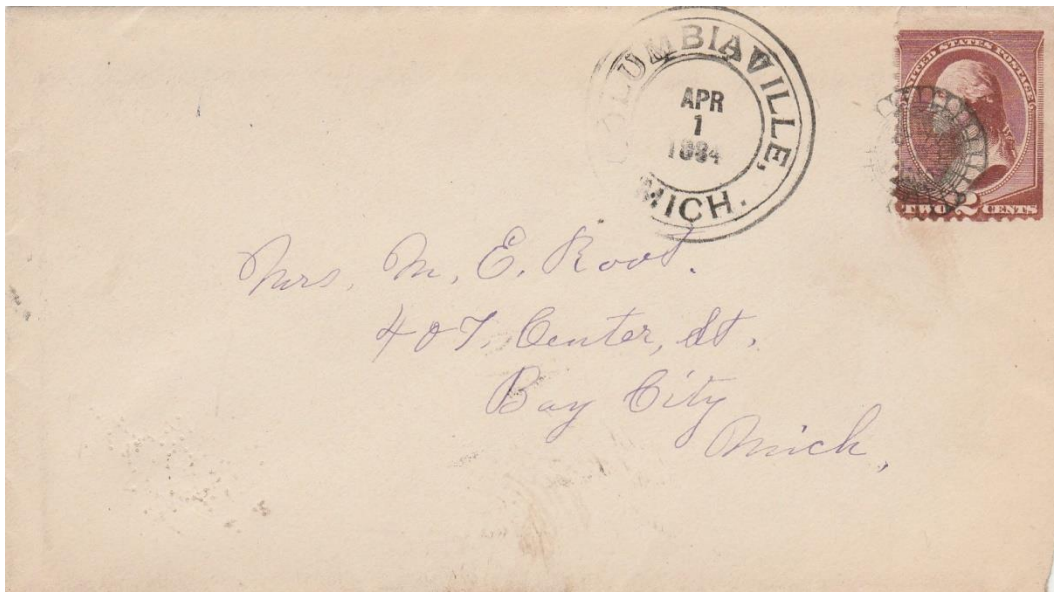 COLUMBIAVILLE,
APR
1
1884
MICH.
UNITED STATES POSTAGE
TWO 2 CENTS
Mrs. M. E. Root.
407, Center, St.
Bay City
Mich,